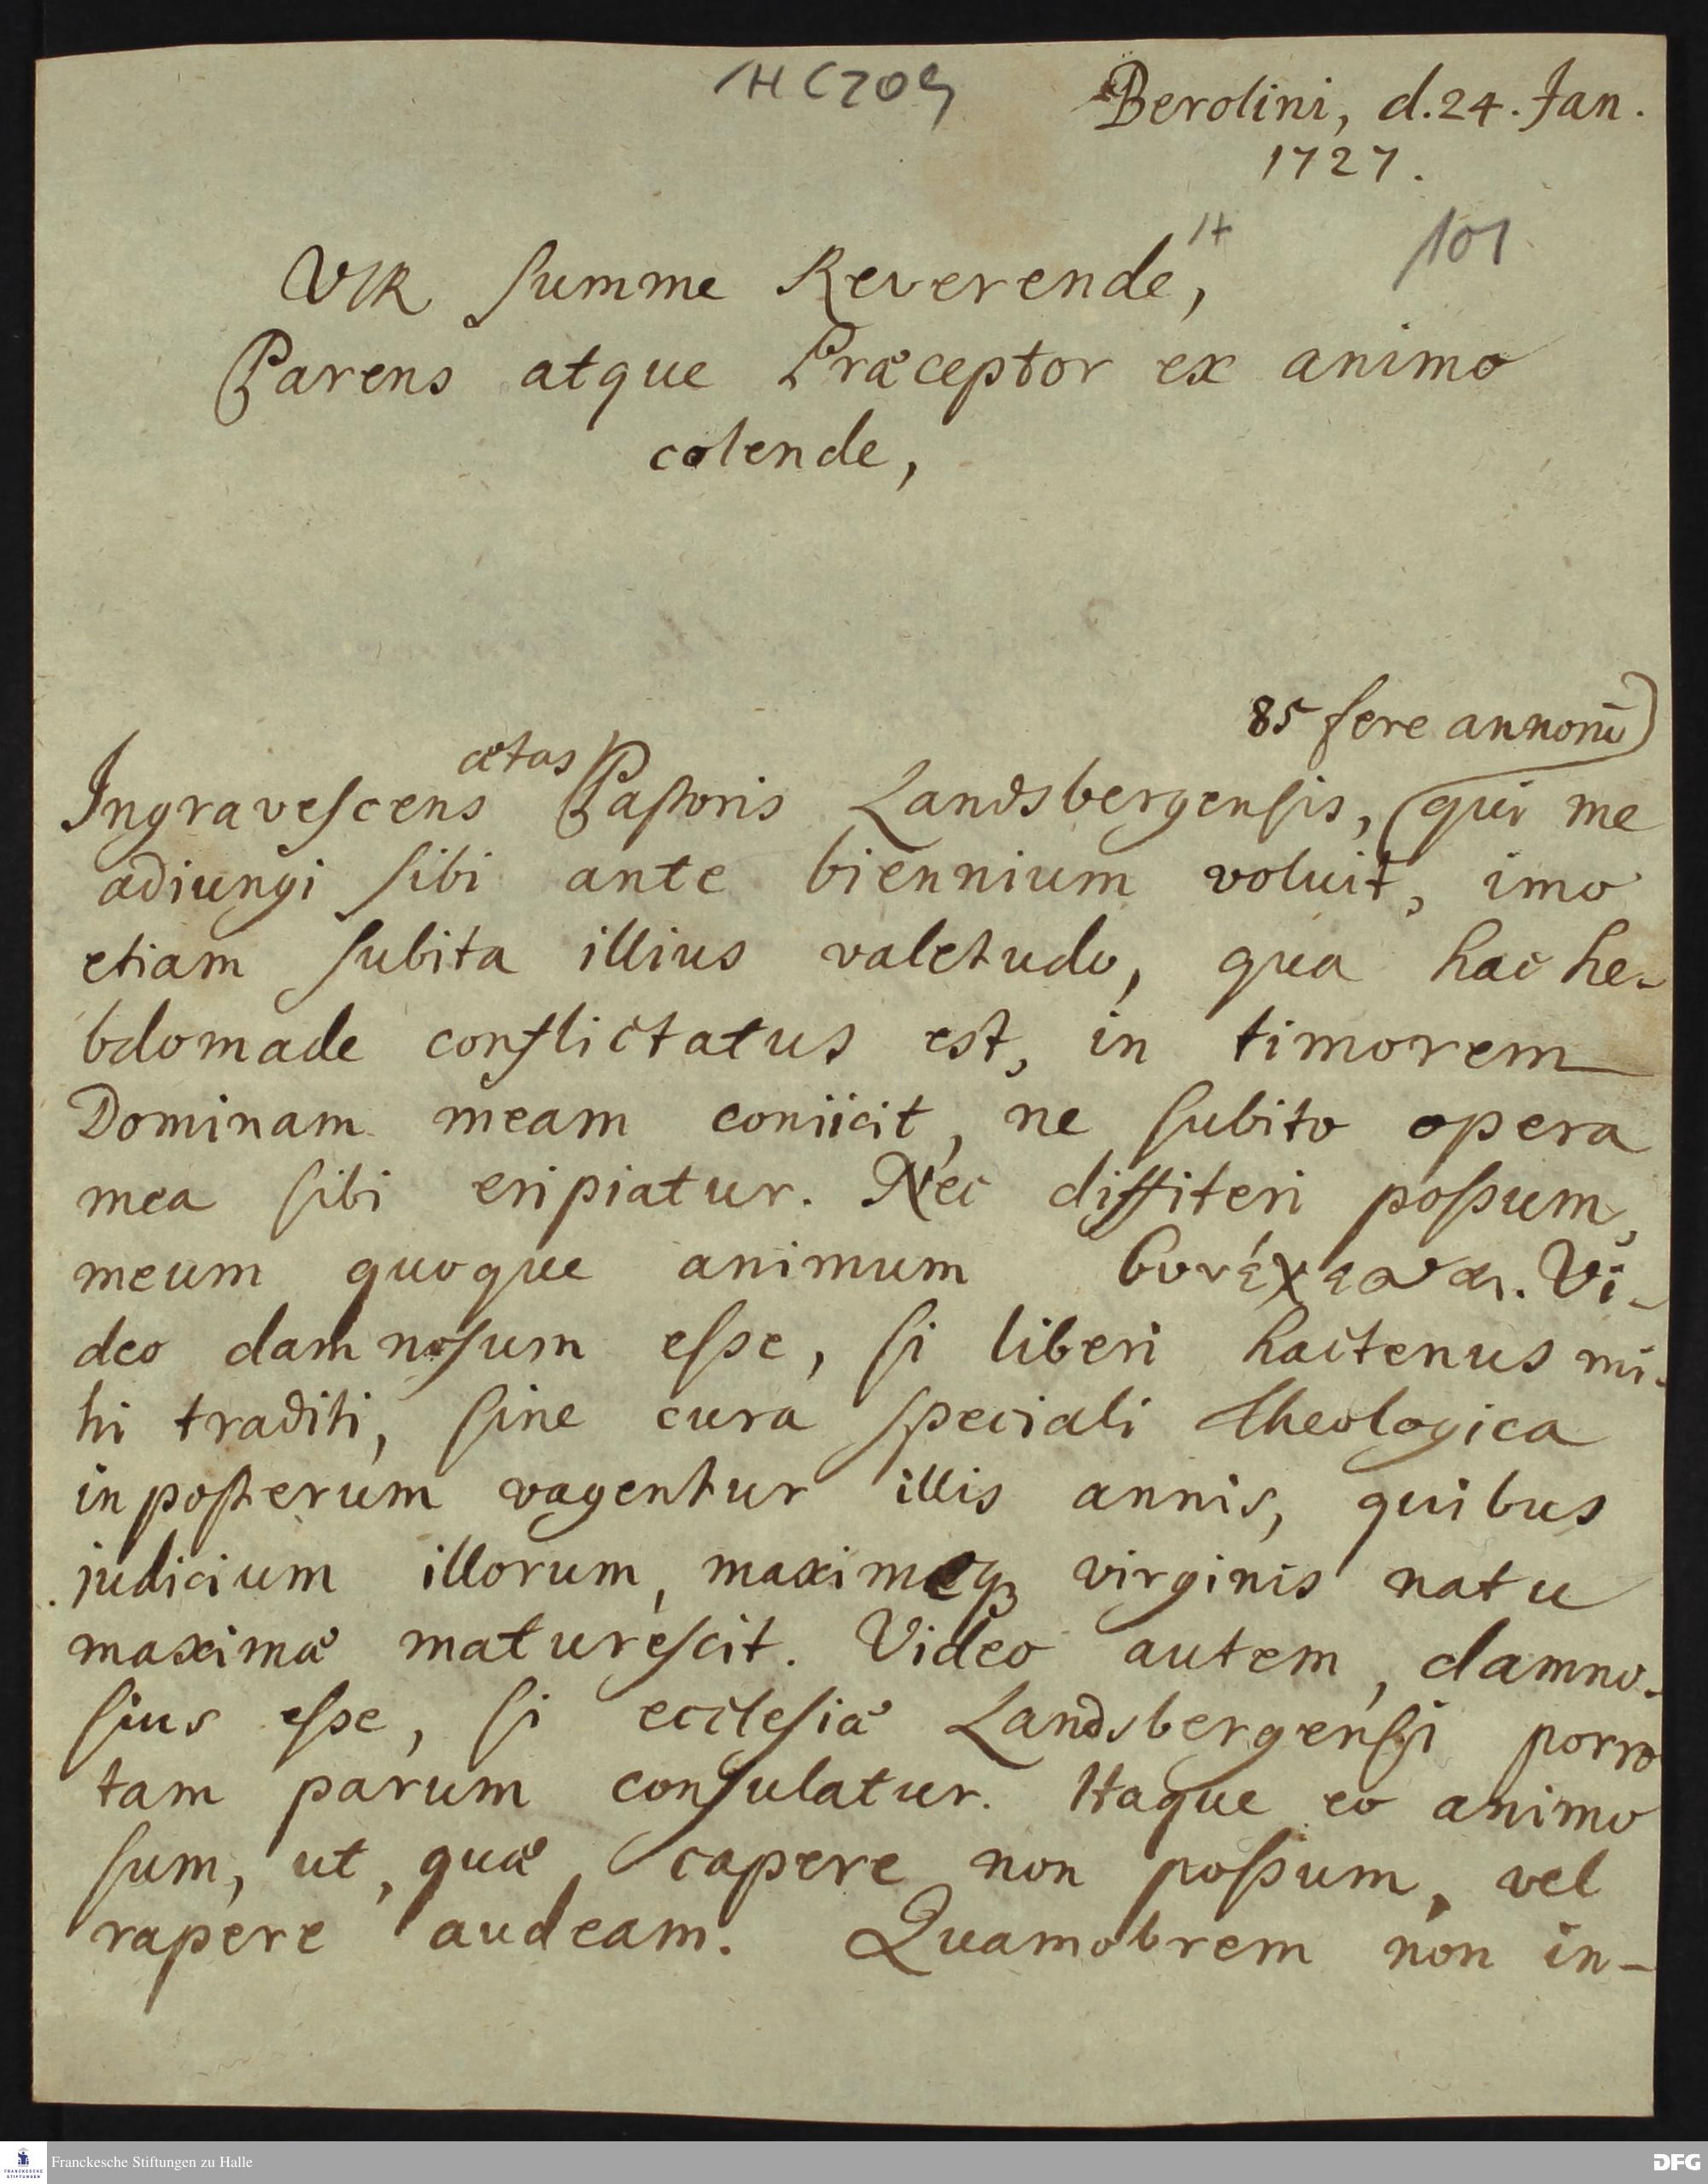 HC709
Berolini, d. 24. Jan.
1727.
101
VIR summe Reverende,
Parens atque Præceptor ex animo
colende,
85 fere annorũ)
Ingravescens ætas Pastoris Landsbergensis, (qui me
adiungi sibi ante biennium voluit, imo
etiam subita illius valetudo, qua hac he-
bdomade conflictatus est, in timorem
Dominam meam coniicit, ne subito opera
mea sibi eripiatur. Nec diffiteri possum,
meum quoque animum συνέχεσθαι. Vi-
deo damnosum esse, si liberi hactenus mi-
hi traditi, sine cura speciali theologica
inposterum vagentur illis annis, quibus
judicium illorum, maximeq́ꝫ virginis natu
maximæ maturescit. Video autem, damno-
sius esse, si ecclesiæ Landsbergensi porro
tam parum consulatur. Itaque eo animo
sum, ut, quæ capere non possum, vel
rapere audeam. Quamobrem non in-
Franckesche Stiftungen zu Halle
FRANCKESCHE STIFTUNGEN
DFG